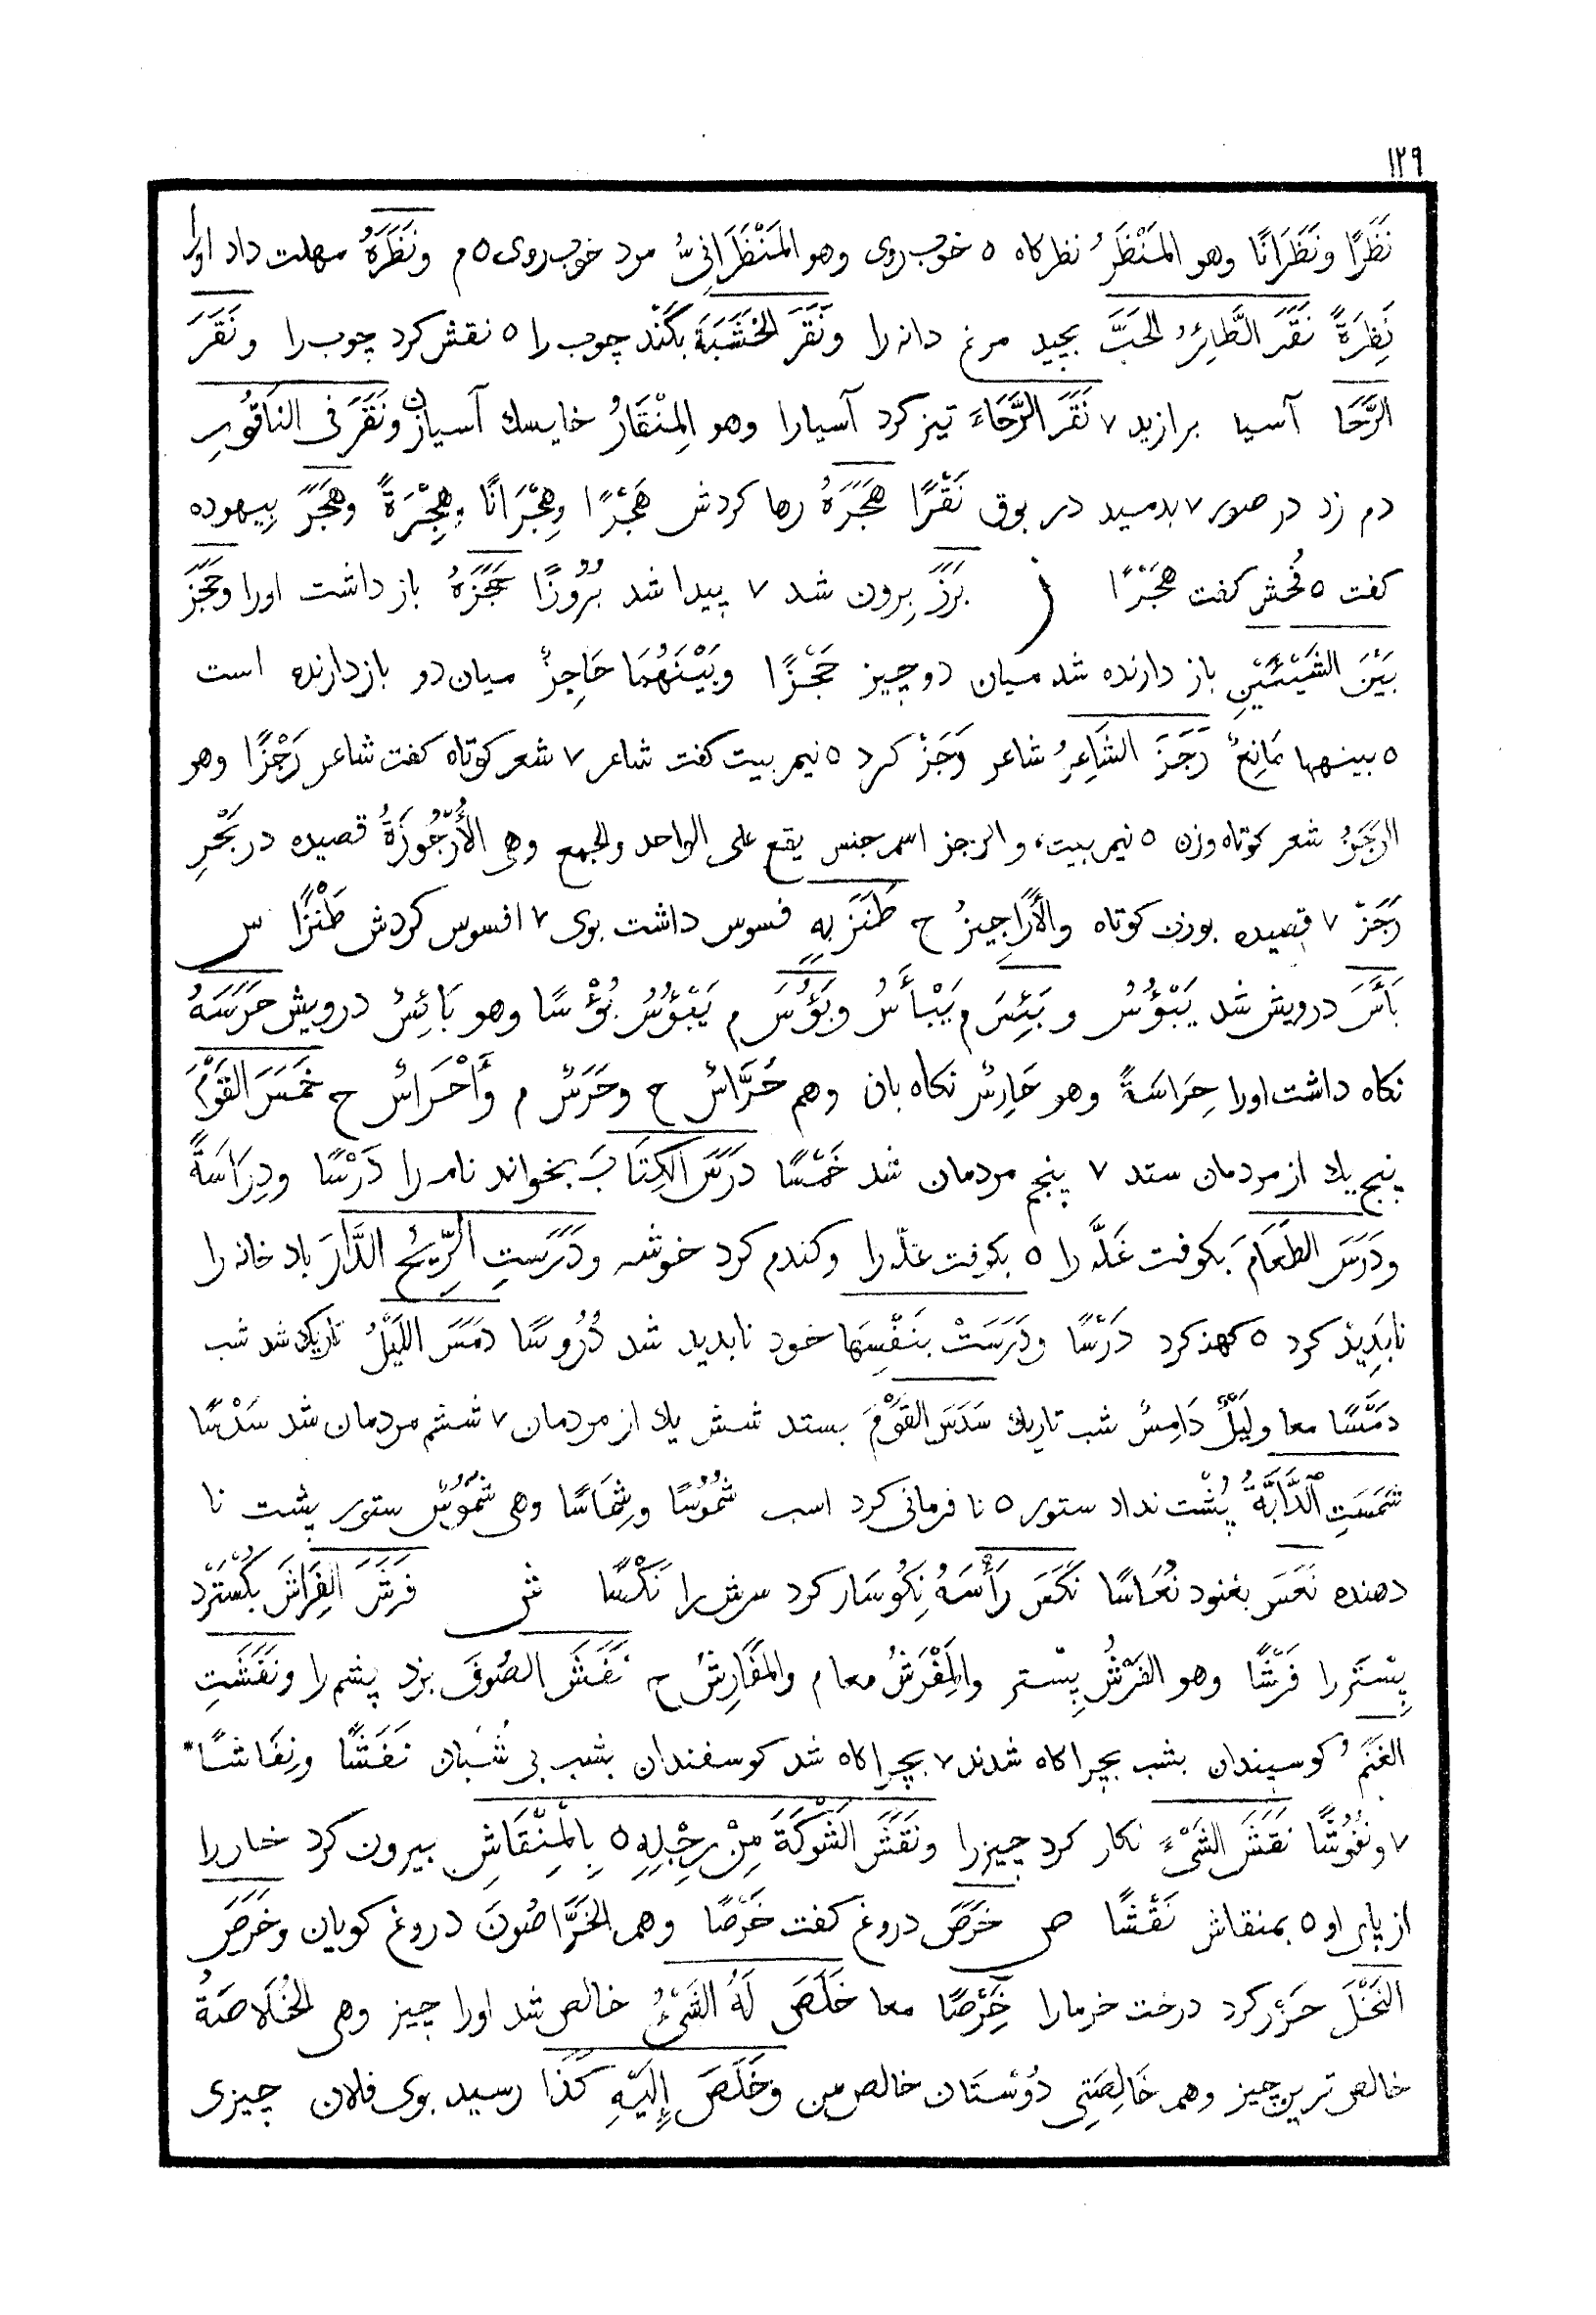 ١٢٩
نَظَرًا ونَظَرَانًا وهو المَنْظَرُ نظرکاه ٥ خوب روی وهو المَنْظَرَانِیُّ مرد خوب روی ٥ م ونَظَرَهُ مهلت داد اورا
نَظِرَةً نَقَرَ الطَّائِرُ الحَبَّ بچید مرغ دانه را ونَقَرَ الخَشَبَةَ بکَنْد چوب را ٥ نقش کرد چوب را ونَقَرَ
الرَّحَا آسیا برازید ٧ نَقَرَ الرَّحَاءَ تیز کرد آسیارا وهو المِنْقَارُ خایسك آسیازن ونَقَرَ فی النَاقُورِ
دم زد در صور ٧ بدمید در بوق نَقْرًا هَجَرَهُ رها کردش هَجْرًا وهِجْرَانًا وهِجْرَةً وهَجَرَ بِیهوده
کفت ٥ فُحش کفت هَجْرًا ز بَرَزَ بِرون شد ٧ پیدا شد بُرُوزًا حَجَزَهُ باز داشت اورا وحَجَزَ
بَیْنَ الشَیْئَیْنِ باز دارنده شد میان دو چیز حَجْزًا وبَیْنَهُمَا حَاجِزٌ میان دو بازدارنده است
٥ بینهما مَانِعٌ رَجَزَ الشَاعِرُ شاعر رَجَزْ کرد ٥ نیم بیت کفت شاعر ٧ شعر کوتاه کفت شاعر رَجْزًا وهو
الرَجَزُ شعر کوتاه وزن ٥ نیم بیت، والرجز اسم جنس یقع علی الواحد والجمع وهی الأُرْجُوزَةُ قصیده در بَحْرِ
رَجَزْ ٧ قصیده بوزن کوتاه والأَرَاجِیزُ ج طَنَزَ بِهِ فسوس داشت بوی ٧ افسوس کردش طَنْزًا س
بَأَسَ درویش شد یَبْؤُسُ وبَئِسَ م یَبْأَسُ وبَؤُسَ م یَبْؤُسُ بُؤْسًا وهو بَائِسٌ درویش حَرَسَهُ
نکاه داشت اورا حِرَاسَةً وهو حَارِسٌ نکاه بان وهم حُرَّاسٌ ج وحَرَسٌ م وأَحْرَاسٌ ج خَمَسَ القَوْمَ
پنج یك از مردمان ستد ٧ پنجم مردمان شد خَمْسًا دَرَسَ الکِتَابَ بخواند نامه را دَرْسًا ودِرَاسَةً
ودَرَسَ الطَعَامَ بکوفت غَلَّه را ٥ بکوفت غلّه را وکندم کرد خوشه ودَرَسَتِ الرِّیحُ الدَّارَ باد خانه را
نابَدِیدْ کرد ٥ کهنه کرد دَرْسًا ودَرَسَتْ بنَفْسِهَا خود نابدید شد دُرُوسًا دَمَسَ اللَیْلُ تاریك شد شب
دَمْسًا معا ولَیْلٌ دَامِسٌ شب تاریك سَدَسَ القَوْمَ بستد شش یك از مردمان ٧ ششم مردمان شد سَدْسًا
شَمَسَتِ الدَّابَّةُ پُشْت نداد ستور ٥ نا فرمانی کرد اسب شُمُوسًا وشِمَاسًا وهی شَمُوسٌ ستور پشت نا
دهنده نَعَسَ بغنود نُعَاسًا نَکَسَ رَأْسَهُ نِکُوسَار کرد سرش را نَکْسًا ش فَرَشَ الفِرَاشَ بکُسْتَرْد
بِسْتَر را فَرْشًا وهو الفَرْشُ بِسْتر والمِفْرَشُ معا م والمَفَارِشُ ج نَفَشَ الصُوفَ بزد پشم را ونَفَشَتِ
الغَنَمُ کوسپندان بشب بچراکاه شدند ٧ بچراکاه شد کوسفندان بشب بی شُبَان نَفَشًا ونِفَاشًا*
٧ ونُفُوشًا نقَشَ الشَیْءَ نکار کرد چیزرا ونَقَشَ الشَوْکَةَ مِنْ رِجْلِهِ ٥ بِالمِنْقَاشِ بیرون کرد خار را
از پای او ٥ بمنقاش نَقْشًا ص خَرَصَ دروغ کفت خَرْصًا وهم الخَرَّاصُونَ دروغ کویان وخَرَصَ
النَخْلَ حَزْر کرد درخت خرمارا خَرْصًا معا خَلَصَ لَهُ الشَیْءُ خالص شد اورا چیز وهی الخُلَاصَةُ
خالص ترین چیز وهم خَالِصَتِی دُوسْتَان خالص من وخَلَصَ إِلَیْهِ کَذَا رسید بوی فلان چیزی